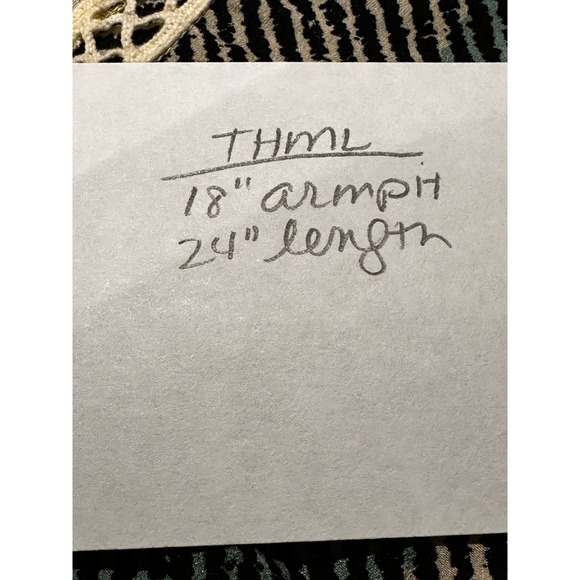 THML
18" armpit
24" length